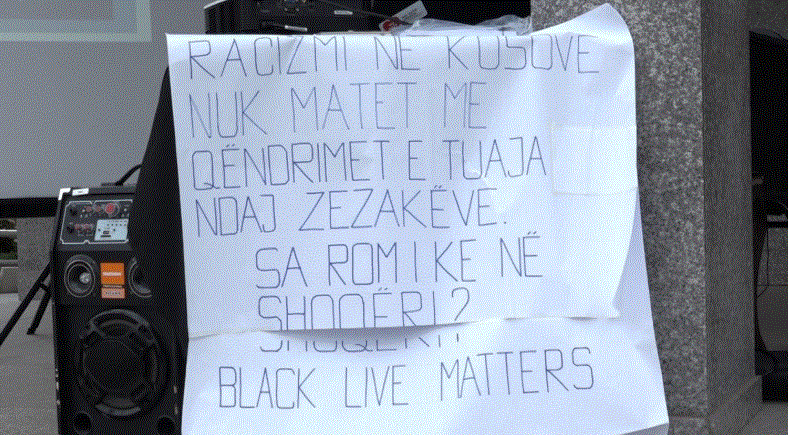 RACIZMI NË KOSOVË
NUK MATET ME
QËNDRIMET E TUAJA
NDAJ ZEZAKËVE.
SA ROM I KE NË
SHOQËRI?
SHOQËRI?
BLACK LIVE MATTERS